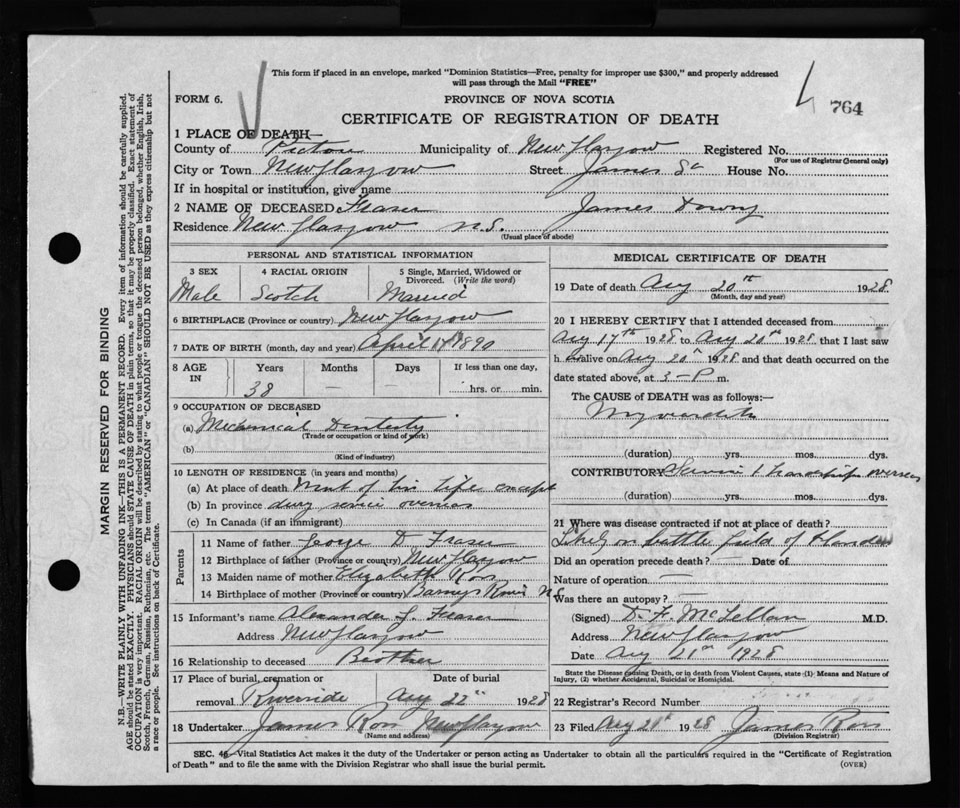 This form if placed in an envelope, marked "Dominion Statistics—Free, penalty for improper use $300," and properly addressed
will pass through the Mail "FREE"
FORM 6.
PROVINCE OF NOVA SCOTIA
764
CERTIFICATE OF REGISTRATION OF DEATH
1 PLACE OF DEATH—
County of Pictou Municipality of New Glasgow Registered No.
(For use of Registrar General only)
City or Town New Glasgow Street James St House No.
If in hospital or institution, give name
2 NAME OF DECEASED Fraser James
Residence New Glasgow N.S.
(Usual place of abode)
PERSONAL AND STATISTICAL INFORMATION
3 SEX 4 RACIAL ORIGIN 5 Single, Married, Widowed or Divorced. (Write the word)
Male Scotch Married
6 BIRTHPLACE (Province or country) New Glasgow
7 DATE OF BIRTH (month, day and year) April 1890
8 AGE IN Years Months Days If less than one day,
38 — — hrs. or min.
9 OCCUPATION OF DECEASED
(a) Mechanical Dentistry
(Trade or occupation or kind of work)
(b)
(Kind of industry)
10 LENGTH OF RESIDENCE (in years and months)
(a) At place of death Most of his life except
(b) In province during service overseas
(c) In Canada (if an immigrant)
Parents
11 Name of father George D Fraser
12 Birthplace of father (Province or country) New Glasgow
13 Maiden name of mother Elizabeth Ross
14 Birthplace of mother (Province or country) Barneys River N.S.
15 Informant's name Alexander J. Fraser
Address New Glasgow
16 Relationship to deceased Brother
17 Place of burial, cremation or removal Date of burial
Riverside Aug 22nd 1928
18 Undertaker James Ross New Glasgow
(Name and address)
MEDICAL CERTIFICATE OF DEATH
19 Date of death Aug 20th 1928
(Month, day and year)
20 I HEREBY CERTIFY that I attended deceased from
Aug 17th 1928 to Aug 20th 1928 that I last saw
h alive on Aug 20th 1928 and that death occurred on
date stated above, at 3—P m.
The CAUSE of DEATH was as follows:—
Myocarditis
(duration) yrs. mos. dys.
CONTRIBUTORY Service & hardships overseas
(duration) yrs. mos. dys.
21 Where was disease contracted if not at place of death?
Likely on battle field of Flanders
Did an operation precede death? — Date of
Nature of operation —
Was there an autopsy? —
(Signed) D. F. McLellan M.D.
Address New Glasgow
Date Aug 21st 1928
State the Disease causing Death, or in death from Violent Causes, state (1) Means and Nature of
Injury, (2) whether Accidental, Suicidal or Homicidal.
22 Registrar's Record Number
23 Filed Aug 1928 James Ross
(Division Registrar)
SEC. 46 Vital Statistics Act makes it the duty of the Undertaker or person acting as Undertaker to obtain all the particulars required in the "Certificate of Registration
of Death" and to file the same with the Division Registrar who shall issue the burial permit.
(OVER)
MARGIN RESERVED FOR BINDING
N.B.—WRITE PLAINLY WITH UNFADING INK—THIS IS A PERMANENT RECORD. Every item of information should be carefully supplied.
AGE should be stated EXACTLY. PHYSICIANS should STATE CAUSE OF DEATH in plain terms, so that it may be properly classified. Exact statement of
OCCUPATION is very important. RACIAL ORIGIN will be described by stating to what people or tongue the deceased person belonged, whether English, Irish,
Scotch, French, German, Russian, Ruthenian, etc. The terms "AMERICAN" or "CANADIAN" SHOULD NOT BE USED as they express citizenship but not
a race or people. See instructions on back of Certificate.